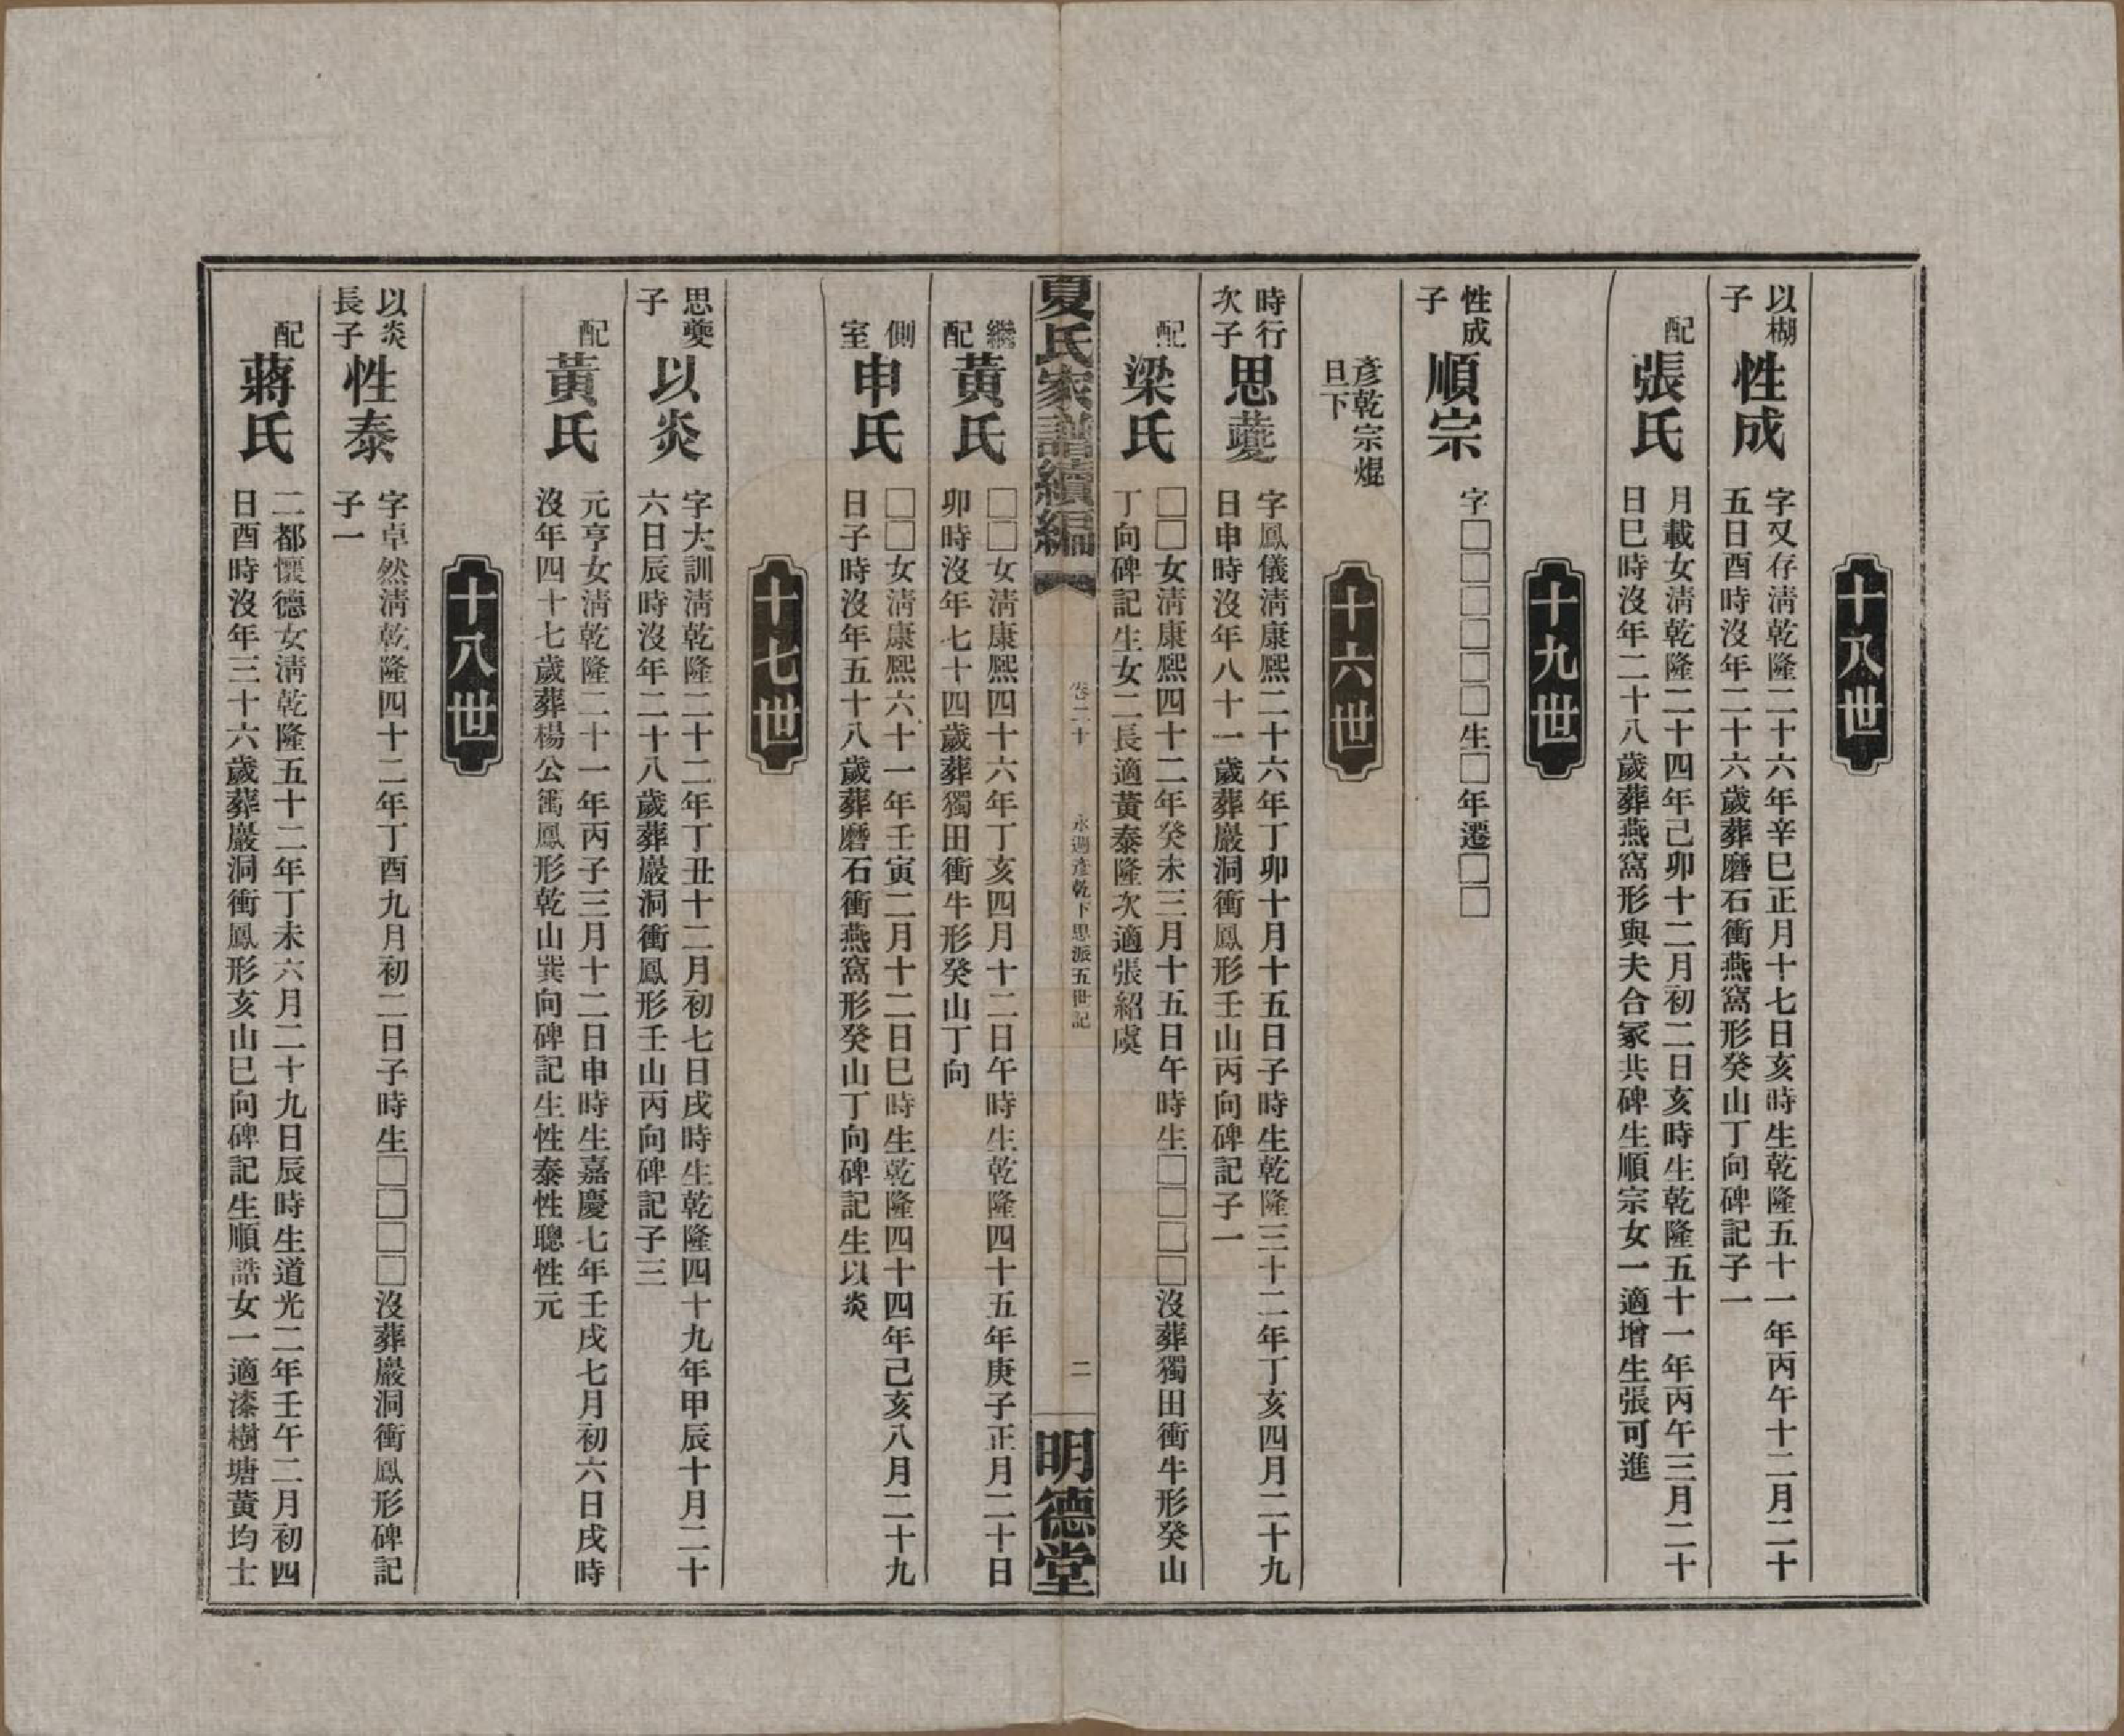 十八世
以楜
子
性成
字又存淸乾隆二十六年辛巳正月十七日亥時生乾隆五十一年丙午十二月二十
五日酉時沒年二十六歲葬磨石衝燕窩形癸山丁向碑記子一
配
張氏
月載女淸乾隆二十四年己卯十二月初二日亥時生乾隆五十一年丙午三月二十
日巳時沒年二十八歲葬燕窩形與夫合冢共碑生順宗女一適增生張可進
十九世
性成
子
順宗
字□□□□□□生□年遷□□
彥乾宗焜
旦下
十六世
時行
次子
思蘷
字鳳儀淸康熙二十六年丁卯十月十五日子時生乾隆三十二年丁亥四月二十九
日申時沒年八十一歲葬巖洞衝鳳形壬山丙向碑記子一
配
梁氏
□□女淸康熙四十二年癸未三月十五日午時生□□□□沒葬獨田衝牛形癸山
丁向碑記生女二長適黃泰隆次適張紹虞
夏氏家譜續編
卷二十
永遇彥乾下思派五世記
二
明德堂
繼
配
黃氏
□□女淸康熙四十六年丁亥四月十二日午時生乾隆四十五年庚子正月二十日
卯時沒年七十四歲葬獨田衝牛形癸山丁向
側
室
申氏
□□女淸康熙六十一年壬寅二月十二日巳時生乾隆四十四年己亥八月二十九
日子時沒年五十八歲葬磨石衝燕窩形癸山丁向碑記生以炎
十七世
思夔
子
以炎
字大訓淸乾隆二十二年丁丑十二月初七日戌時生乾隆四十九年甲辰十月二十
六日辰時沒年二十八歲葬巖洞衝鳳形壬山丙向碑記子三
配
黃氏
元亨女淸乾隆二十一年丙子三月十二日申時生嘉慶七年壬戌七月初六日戌時
沒年四十七歲葬楊公嶲鳳形乾山巽向碑記生性泰性聰性元
十八世
以炎
長子
性泰
字卓然淸乾隆四十二年丁酉九月初二日子時生□□□□沒葬巖洞衝鳳形碑記
子一
配
蔣氏
二都懷德女淸乾隆五十二年丁未六月二十九日辰時生道光二年壬午二月初四
日酉時沒年三十六歲葬巖洞衝鳳形亥山巳向碑記生順誥女一適漆樹塘黃均士